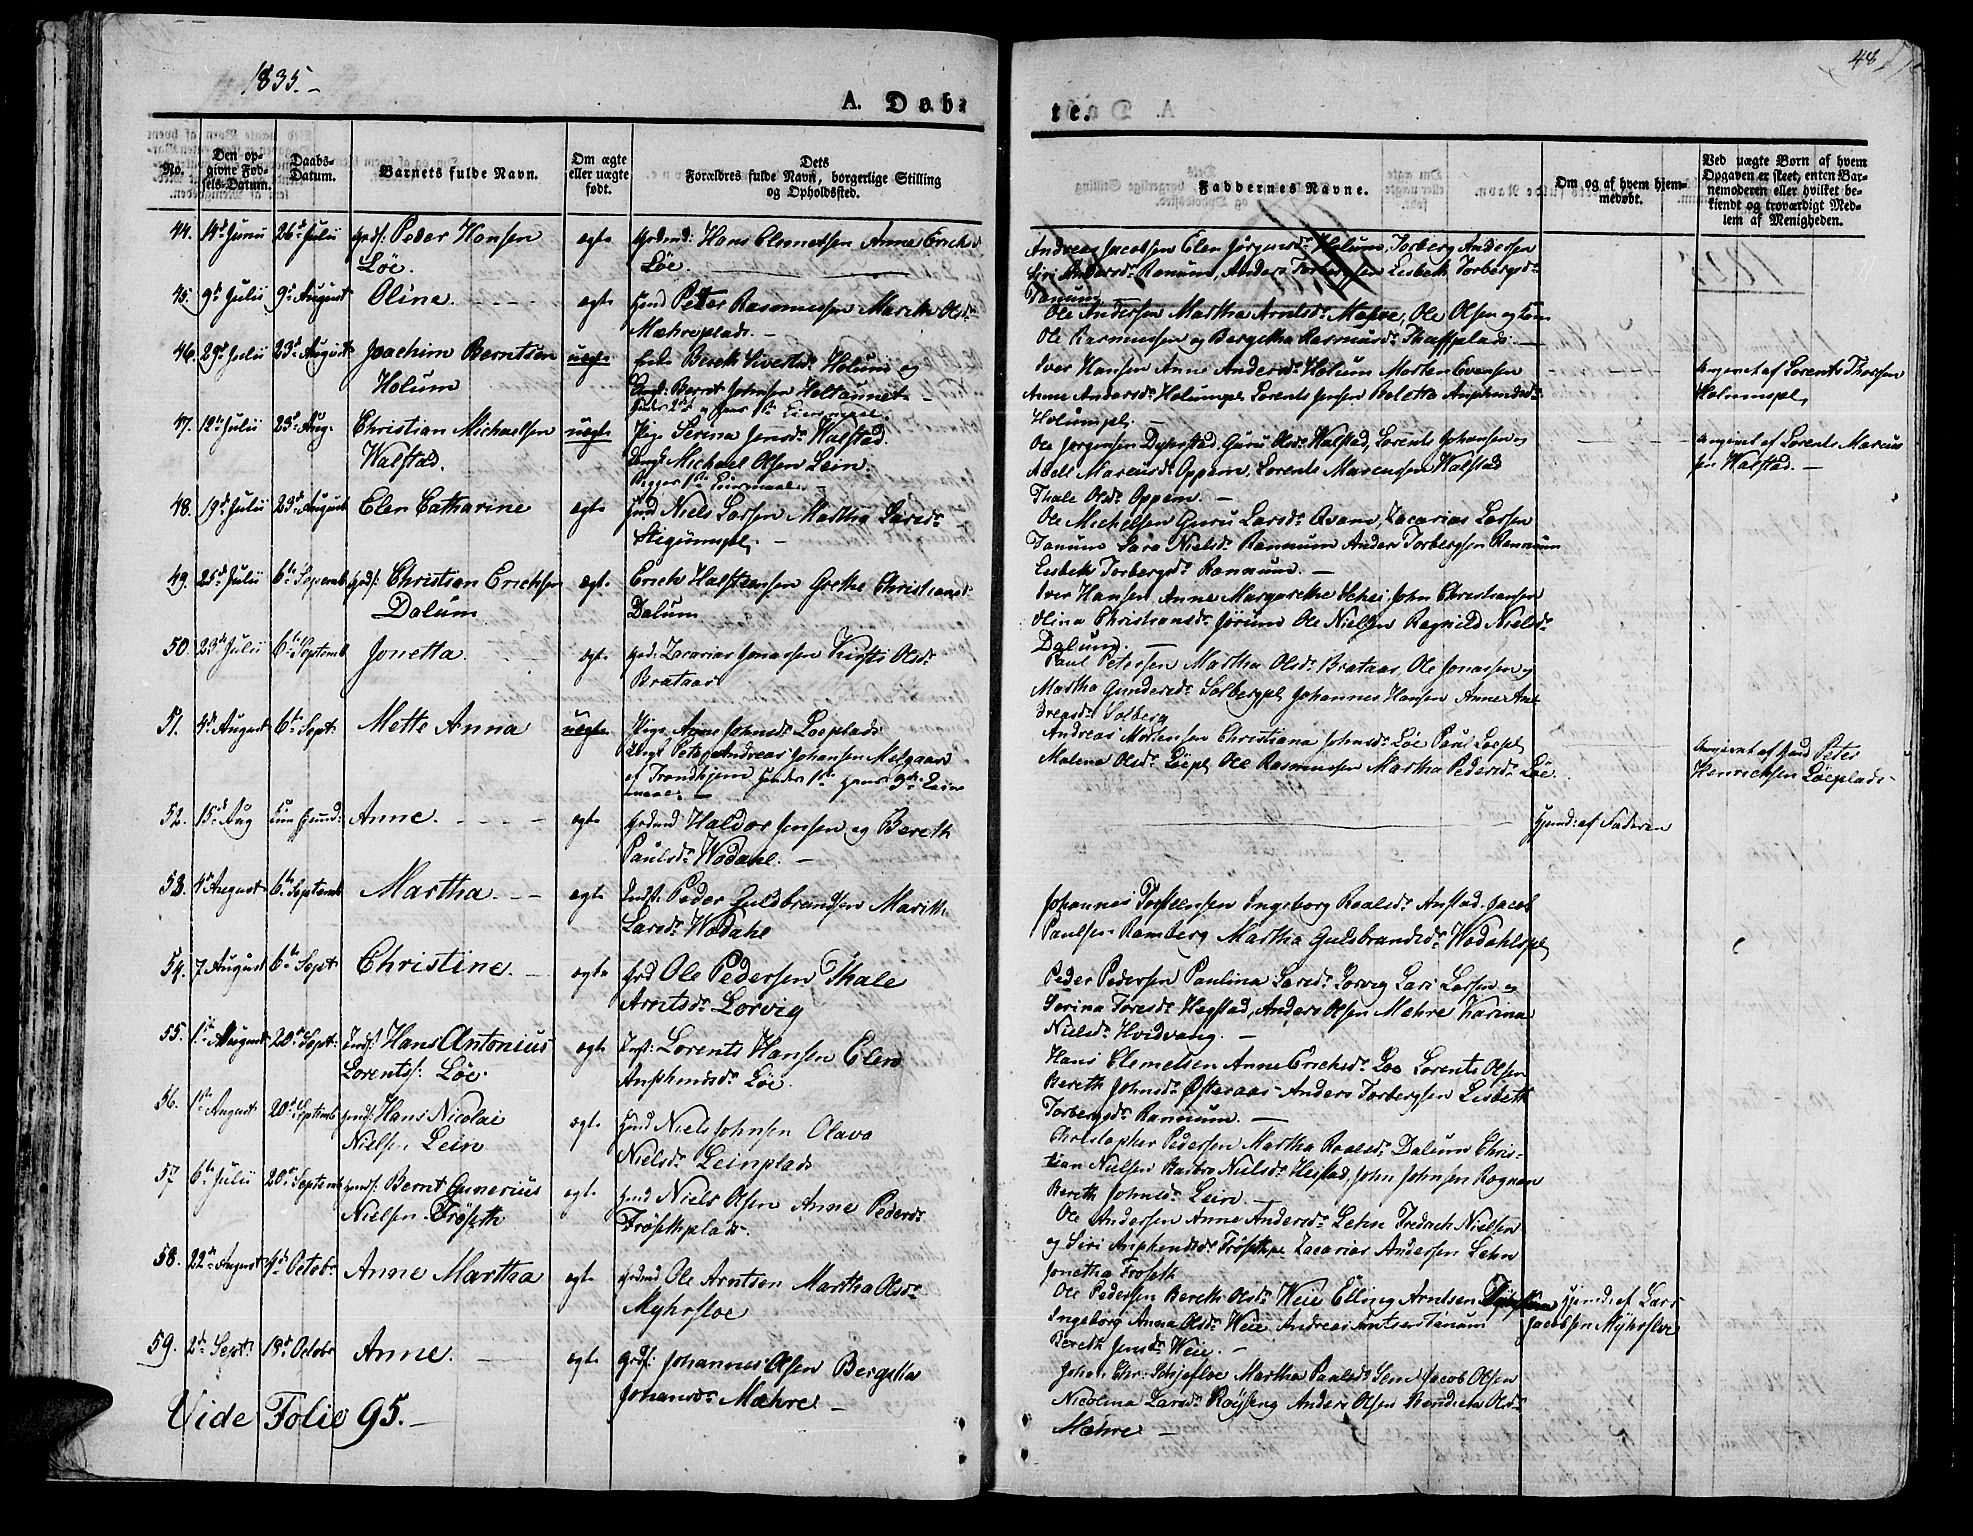 1835.-
48
A. Døbte.
No.
Den opgivne Fødsels-Datum.
Daabs-Datum.
Barnets fulde Navn.
Om ægte eller uægte født.
Dets Forældres fulde Navn, borgerlige Stilling og Opholdssted.
Faddernes Navne.
Om og af hvem hjemmedøbt.
Ved uægte Børn af hvem Opgaven er skeet, enten Barnemoderen eller hvilket bekiendt og troværdigt Medlem af Menigheden.
44. 14d Junii 26d Julii Peder Hansen ægte Hans Clemetsen Anne Erichsd
Løe. Løe.
Andreas Jacobsen Elen Jørgensdr Holum, Torberg Andersen
Siri Andersdr Ranum, Anders Torbergsen Lisbeth Torbergsdr
45. 9d Julii 9d August Oline. ægte Peter Rasmussen Marith Olsdr
Mæhreplads.
Ole Andersen Martha Arntsdr Mæhre, Ole Olsen og
Ole Rasmussen og Bergetha Rasmusdr
46. 29d Julii 23d August Joachim Berntsen uægte Bereth Sivertsdr Holum og
Holum Bernt Johnsen Heltaunet
Iver Hansen Anne Andersdr Holum Morten Evensen
Anne Andersdr Holumspl Lorents Jensen Beletta
Holumpl.
Angivet af Lorents Thorsen
Holumspl,
47. 12d Julii 23d Aug. Christian Michaelsen uægte Pige Serina Jensdr Walstad.
Walstad. Michael Olsen Lein.
Ole Jørgensen Dyrstad, Guru Olsdr Walstad, Lorents Johansen og
Adell Marcusdr Oppem, Lorents Marcusen Walstad
Thale Olsdr Oppem.
Angivet af Lorents Marcus
sen Walstad.
48. 19d Julii 23d August Elen Catharine ægte Niels Larsen Martha Larsdr
Stegumspl.
Ole Michelsen Guru Larsdr Qvam, Zacarias Larsen
Tanum Sara Nielsdr Rannum Anders Torbergsen Rannum
Lisbeth Torbergsdr Rannum.
49. 25d Julii 6te Septemb Christian Erichsen ægte Erich Halstensen Grethe Christiansd
Dalum Dalum
Iver Hansen, Anne Margrethe Schei, John Christiansen
Olina Christiansdr Jørum Ole Nielsen Ragnild Nielsdr
Dalum
50. 23d Julii 6te Septemb Jonetta. ægte Zacarias Jonassen Kirsti Olsdr
Brataas
Paul Petersen Martha Olsdr Brataas, Ole Jonassen og
Martha Gundersdr Solbergpl Johannes Hansen Anne And
dreasdr Solberg
51. 4d August 6te Sept: Mette Anna uægte Pige Anne Johnsdr Løeplads
Peter Andreas Johansen Melgaard
af Trondhjem
Andreas Mortensen Christiana Johnsdr Løe Paul Løepl
Malena Olsdr Løepl Ole Rasmussen Martha Pedersdr Løe
Angivet af Peter
Henrichsen Løeplads
52. 15d Aug Anne. ægte Haldor Jensen og Bereth
Paulsdr Wodahl.
Hjemd: af Faderen
53. 4d August 6te Septemb Martha. ægte Peder Guldbrandsen Marith
Larsdr Wodahl
Johannes Torstensen Ingeborg Roalsdr Anstad. Jacob
Paulsen Ramberg Martha Gulsbrandsdr Wodahlspl
54. 7 August 6te Sept Christine. ægte Ole Pedersen Thale
Arntsdr Lorvig
Peder Pedersen Paulina Larsdr Lorvig Lars Larsen og
Serina Toresdr Hegstad, Anders Olsen Mæhre Karina
Nielsdr Hvidvang.
55. 1ste August 20de Sept: Hans Antonius ægte Lorents Hansen Elen
Lorents: Løe. Løe.
Hans Clemetsen Anne Erichsdr Løe Lorents Olsen
Bereth Johnsdr Østeraas Anders Torbergsen Lisbeth
Torbergsdr Rannum.
56. 1ste August 20de Septemb Hans Nicolai ægte Niels Johnsen Olava
Niels: Lein Nielsdr Leinplads
Christopher Pedersen Martha Roalsdr Dalum Chris-
tian Nielsen Barbro Nielsdr Heistad, John Johnsen Rognan
Bereth Johnsdr Lein.
57 6te Julii 20de Septemb Bernt Gunerius ægte Niels Olsen Anne Pedersdr
Nielsen Frøseth Frøsethplads.
Ole Andersen Anne Andersdr Lehn Fredrich Nielsen
og Siri Frøsethpl Zacarias Andersen Lehn
Jonetha Frøseth
58. 22de August 4de Octobr Anne Martha ægte Ole Arntsen Martha Olsdr
Myhrsloe
Ole Pedersen Bereth Olsdr Weie Elling Arntsen
Ingeborg Anna Olsdr Weie Andreas Arntsen Tanum
Bereth Jensdr Weie.
Hjemd: af Lars
Jacobsen Myhrsloe
59. 2de Sept: 18de Octobr Anne. ægte Johannes Olsen Bergetha
Johansdr Mæhre
Johan Chr: Skjefloe Martha Paulsdr Sem Jacob Olsen
Nicolina Larsdr Røyseng Anders Olsen Bendicta Olsdr
Mæhre
Vide Folio 95.-